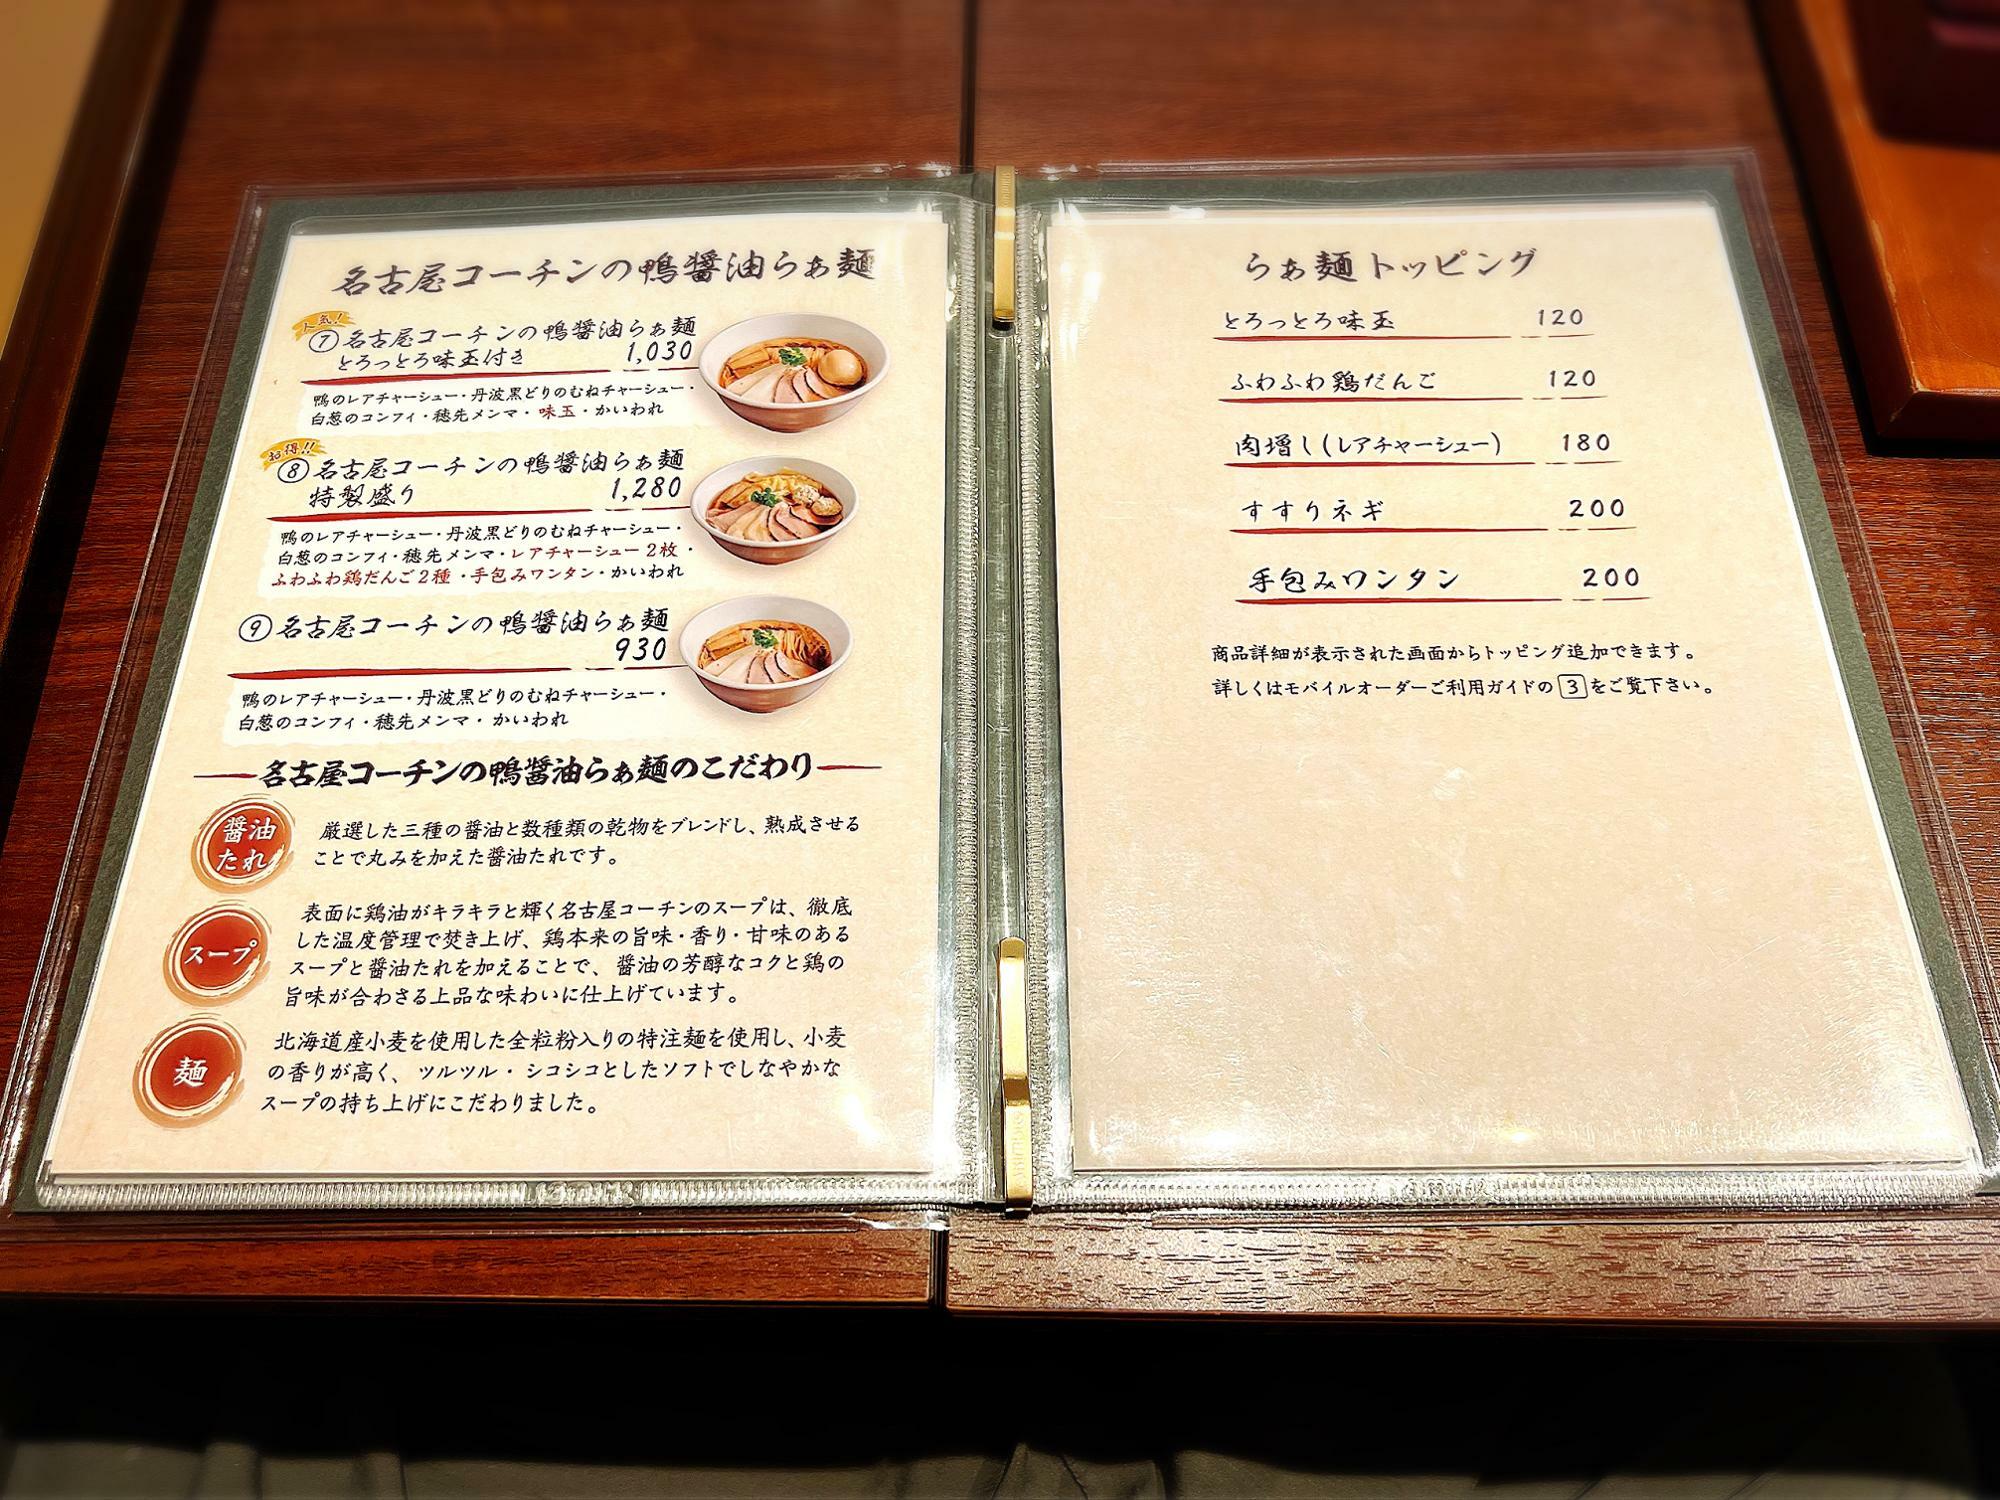 名古屋コーチンの鴨醤油らぁ麺
人気!
⑦名古屋コーチンの鴨醤油らぁ麺
とろっとろ味玉付き 1,030
鴨のレアチャーシュー・丹波黒どりのむねチャーシュー・
白葱のコンフィ・穂先メンマ・味玉・かいわれ
お得!!
⑧名古屋コーチンの鴨醤油らぁ麺
特製盛り 1,280
鴨のレアチャーシュー・丹波黒どりのむねチャーシュー・
白葱のコンフィ・穂先メンマ・レアチャーシュー2枚・
ふわふわ鶏だんご2種・手包みワンタン・かいわれ
⑨名古屋コーチンの鴨醤油らぁ麺
930
鴨のレアチャーシュー・丹波黒どりのむねチャーシュー・
白葱のコンフィ・穂先メンマ・かいわれ
名古屋コーチンの鴨醤油らぁ麺のこだわり
醤油
たれ
厳選した三種の醤油と数種類の乾物をブレンドし、熟成させる
ことで丸みを加えた醤油たれです。
スープ
表面に鶏油がキラキラと輝く名古屋コーチンのスープは、徹底
した温度管理で焚き上げ、鶏本来の旨味・香り・甘味のある
スープと醤油たれを加えることで、醤油の芳醇なコクと鶏の
旨味が合わさる上品な味わいに仕上げています。
麺
北海道産小麦を使用した全粒粉入りの特注麺を使用し、小麦
の香りが高く、ツルツル・シコシコとしたソフトでしなやかな
スープの持ち上げにこだわりました。
らぁ麺トッピング
とろっとろ味玉 120
ふわふわ鶏だんご 120
肉増し(レアチャーシュー) 180
すすりネギ 200
手包みワンタン 200
商品詳細が表示された画面からトッピング追加できます。
詳しくはモバイルオーダーご利用ガイドの3をご覧下さい。